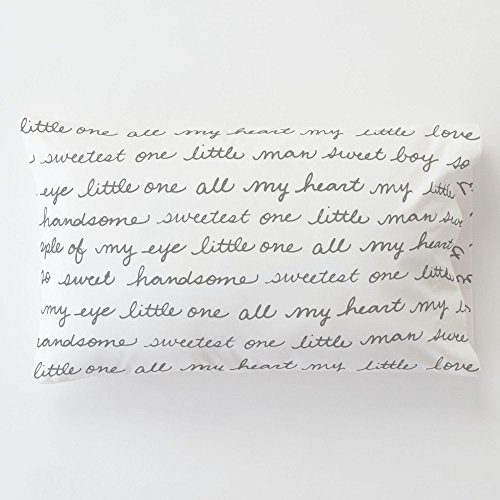 little one all my heart my little love
sweetest one little man sweet boy so
eye little one all my heart my little
handsome sweetest one little man swe
ple of my eye little one all my heart
so sweet handsome sweetest one little
my eye little one all my heart my
andsome sweetest one little man swee
little one all my heart my little love